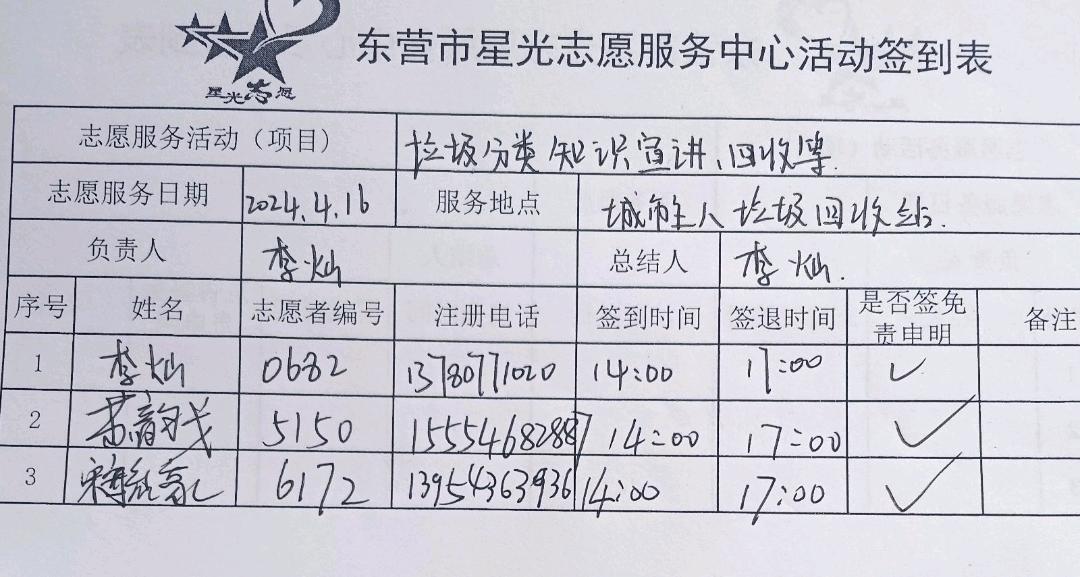 星光志愿
东营市星光志愿服务中心活动签到表
志愿服务活动（项目） 垃圾分类知识宣讲、回收等.
志愿服务日期 2024.4.16 服务地点 城市主人垃圾回收站.
负责人 李灿 总结人 李灿.
序号 姓名 志愿者编号 注册电话 签到时间 签退时间 是否签免责申明 备注
1 李灿 0682 13780771020 14:00 17:00 ✓
2 5150 15554682887 14:00 17:00 ✓
3 6172 13954363936 14:00 17:00 ✓